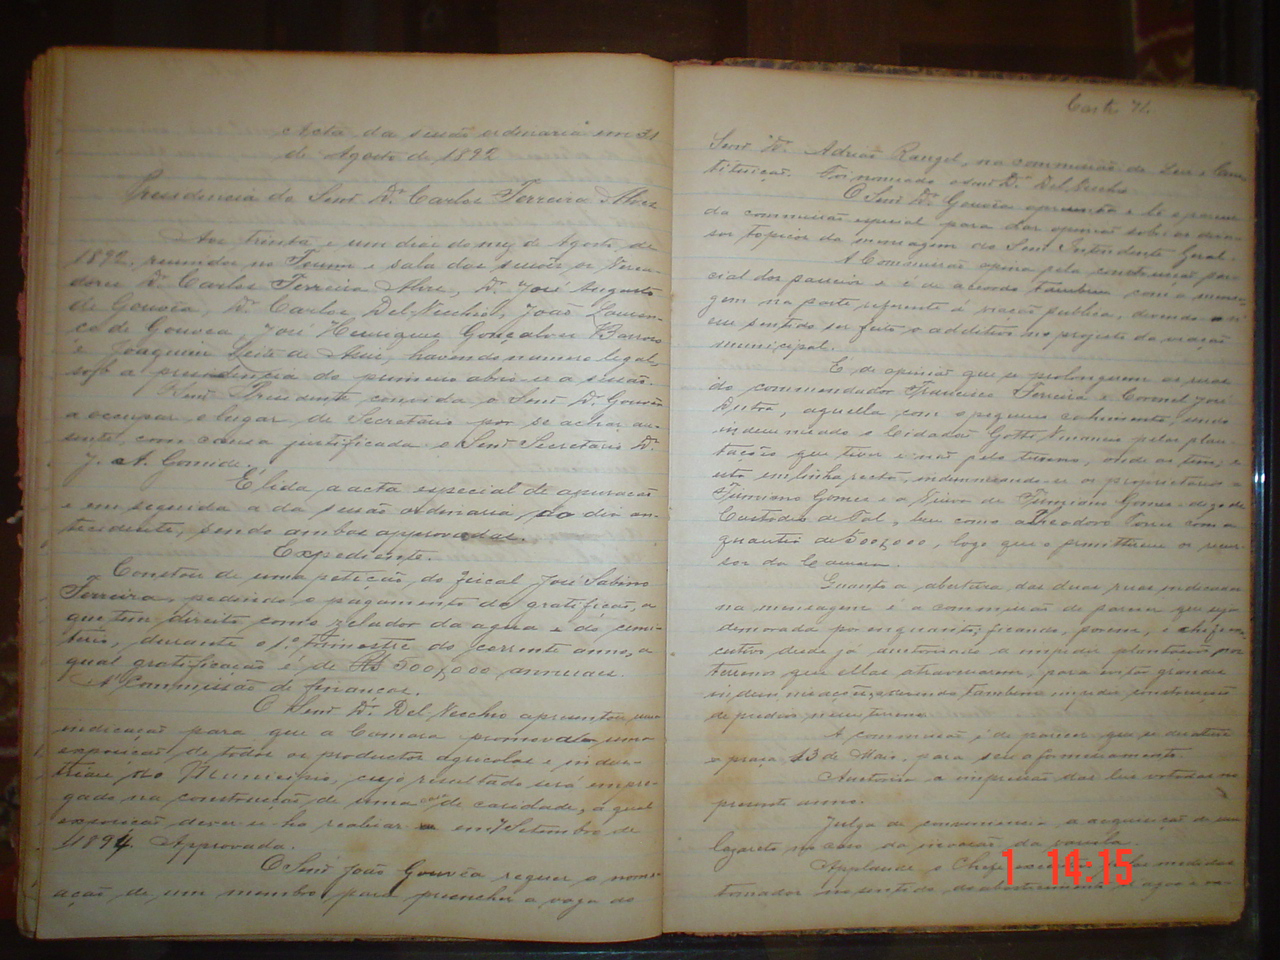 Acta da sessão ordinaria em 31
de Agosto de 1892
Presidencia do Senr. Dr. Carlos Ferreira Alves
Aos trinta e um dias do mez de Agosto de
1892, reunidos no Forum e sala das sessões os Verea-
dores Dr. Carlos Ferreira Alves, Dr. José Augusto
de Gouvêa, Dr. Carlos Del-Vecchio, João Louren-
ço de Gouvêa, José Henrique Gonçalves Barroso
e Joaquim Leite de Assis, havendo numero legal,
sob a presidencia do primeiro abrio-se a sessão.
O Senr. Presidente convida o Senr. Dr. Gouvêa
a occupar o lugar de Secretario por se achar au-
sente, com causa justificada o Senr. Secretario Dr.
J. A. Gomide.
É lida a acta especial de apuração
e em seguida a da sessão ordinaria, do dia an-
tecedente, sendo ambas approvadas.
Expediente.
Constou de uma petição do fiscal José Sabino
Ferreira, pedindo o pagamento da gratificação, a
que tem direito como zelador da agua e do cemi-
terio, durante o 1º trimestre do corrente anno, a
qual gratificação é de Rs 500,000 annuaes.
A Commissão de finanças.
O Senr. Dr. Del-Vecchio apresentou uma
indicação para que a Camara promova uma
exposição de todos os productos agricolas e indus-
triaes do Municipio, cujo resultado será empre-
gado na construcção de uma casa de caridade, a qual
exposição dever-se-ha realizar em 7 Setembro de
1894. Approvada.
O Senr. João Gouvêa requer a nome-
ação de um membro para preencher a vaga do
71.
Senr. Dr. Adrião Rangel, na commissão de Leis e Cons-
tituição. Foi nomeado o Senr. Dr. Del-Vecchio.
O Senr. Dr. Gouvêa apresenta e lê o parecer
da commissão especial para dar opinião sobre os diver-
sos topicos da mensagem do Senr. Intendente Geral.
A Commissão opina pela construcção par-
cial dos passeios e é de accordo tambem com a mensa-
gem na parte referente á viação publica, devendo n'
esse sentido ser feito o additivo no projecto da viação
municipal.
É de opinião que se prolonguem as ruas
do commendador Francisco Ferreira e Coronel José
Dutra, aquella com o pequeno
indemnisado o Cidadão pelas plan-
tações que tiver e não pelo terreno, onde as tem; e
esta em linha recta, indemnizando-se os proprietarios
Firmiano Gomes e a Viuva de Firmiano Gomes digo de
Custodio de Tal, bem como a Theodoro com a
quantia de 500,000, logo que o permittirem os recur-
sos da Camara.
Quanto a abertura das duas ruas indicadas
na mensagem é a commissão de parecer que seja
demorada por enquanto; ficando, porem, o chefe exe-
cutivo desde já autorisado a impedir plantações nos
terrenos que ellas atravessarem, para evitar grandes
indemnisações, devendo tambem impedir construcção
de predios nesse terreno.
A commissão é de parecer que se
a praça 13 de Maio, para seu aformoseamento.
Autorisa a impressão das leis votadas no
presente anno.
Julga de conveniencia a acquisição de um
lazareto no caso da invasão da variola.
Applaude o Chefe pelas medidas
tomadas no sentido do abastecimento d'agoa
1 14:15